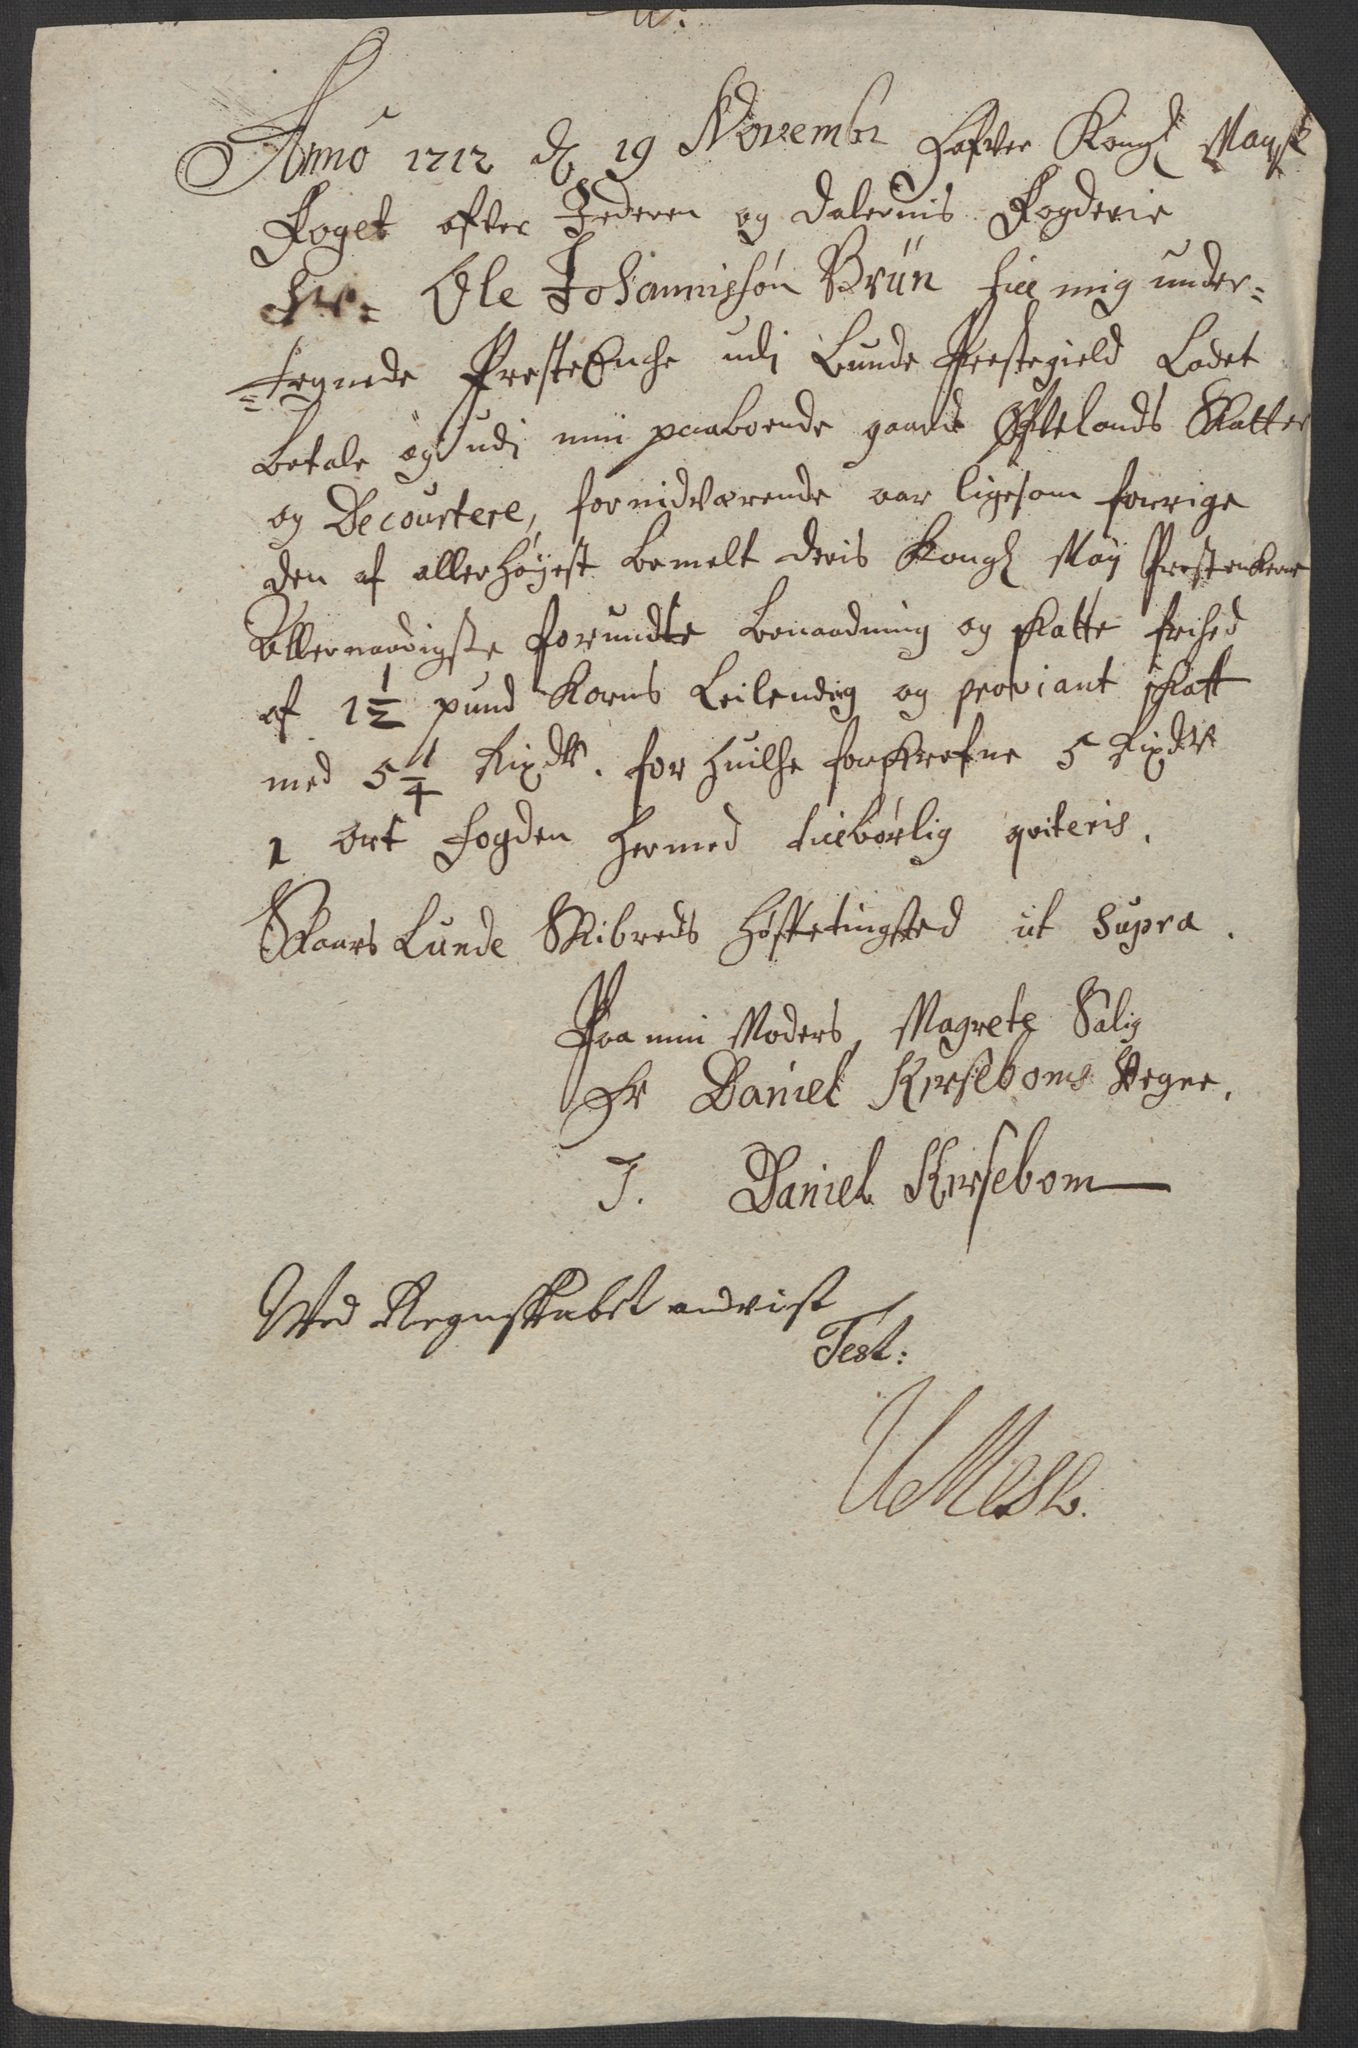 Anno 1712 d 19 Novembr Hafver Kongl Mayst
Foget ofver Jederen og Dalernis Fogderie
Sr. Ole Johannisøn Brün till mig under=
=tegnede PresteEnche udj Lunde Prestegield Ladet
betale og udj min paaboende gaard Øftelands Skatter
og Decourtere, for nidværende aar ligesom forrige
den af allerhøyest bemelt deris Kongl May Prestenkerne
Allernaadigste forundte benaadning og skatte frihed
af 1 1/2 pund Korns Leilending og proviant skatt
med 5 1/4 Rixdr. for huilche forskrefne 5 Rixdr
1 ort fogden hermed tilbørlig qviteris.
Skaars Lunde Skibreds høstetingsted ut Supra.
Paa min Moders, Magrete Salig
Hr Daniel Kirseboms Vegne,
J. Daniel Kirsebom
Ved Regnskabet andvist
Test: